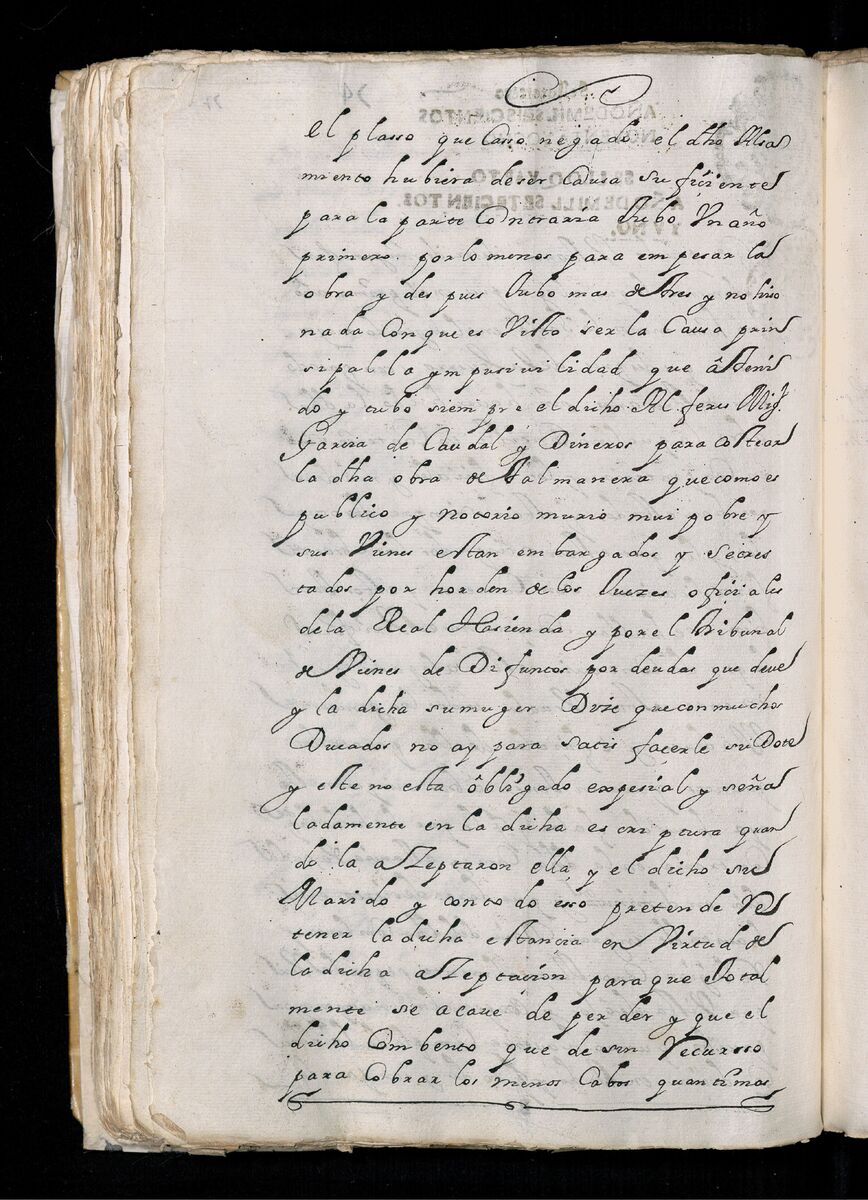 el plasso que Casso negado el dho Alsa
miento hubiera de ser Causa su fiçiente
para la parte Contraria tubo Un año
primero por lo menos para em pesar la
obra y des pues tubo mas de tres y no hiso
nada Con que es Visto ser la Causa prin
sipal la ymposivi lidad que â teni
do y tubo siem pre el dicho Al feres Migl
Garcia de Caudal y Dineros para costear
la dha obra de tal manera que como es
publico y notorio murio mui pobre y
sus Vienes estan em bargados y secres
tados por horden de los Juezes ofiçiales
de la Real Hasienda y por el tribunal
de Vienes de Difuntos por deudas que deve
y la dicha su muger Dize que con muchos
Ducados no ay para satis facerle su Dote
y este no esta ôbligado expesial y seña
ladamente en la dicha es cri ptura quan
do la aZeptaron ella y el dicho su
Marido y con to do esso pretende Re
tener la dicha estancia en Virtud de
la dicha aZeptacion para que total
mente se acave de per der y que el
dicho Combento que de sin Recursso
para Cobrar los menos Cabos quantimas